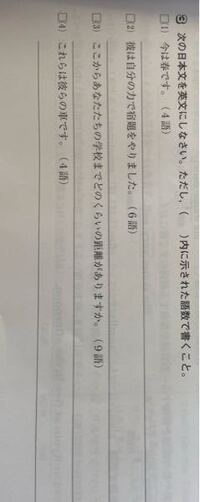 ⑥ 次の日本文を英文にしなさい。ただし，（　）内に示された語数で書くこと。
□(1) 今は春です。（4語）
□(2) 彼は自分の力で宿題をやりました。（6語）
□(3) ここからあなたたちの学校までどのくらいの距離がありますか。（9語）
□(4) これらは彼らの車です。（4語）